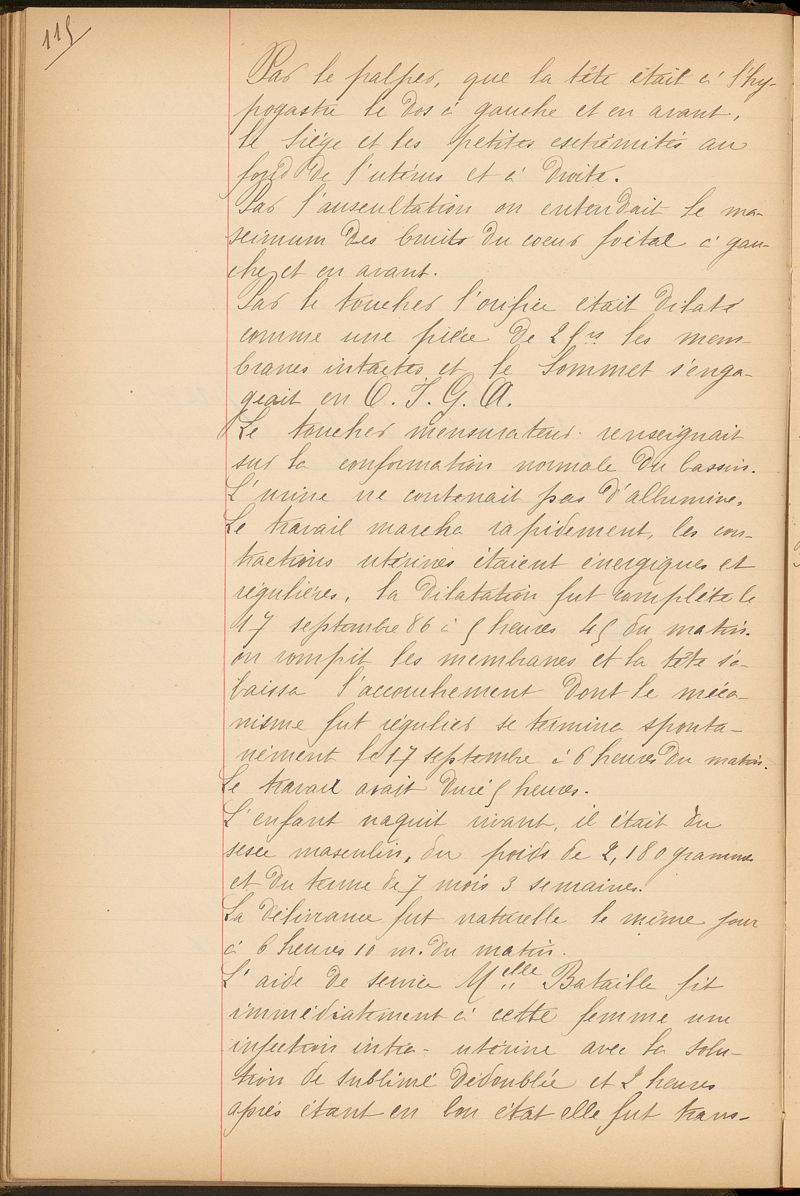 115
Par le palper, que la tête était à l'hy-
pogastre le dos à gauche et en avant,
le siége et les petites extrémités au
fond de l'utérus et à droite.
Par l'auscultation on entendait le ma-
ximum des bruits du coeur foétal à gau-
che et en avant.
Par le toucher l'orifice était dilaté
comme une pièce de 2 frs les mem-
branes intactes et le sommet s'enga-
geait en O. I. G. A.
Le toucher mensurateur renseignait
sur la conformation normale du bassin.
L'urine ne contenait pas d'albumine.
Le travail marcha rapidement, les con-
tractions utérines étaient énergiques et
régulières, la dilatation fut complète le
17 septembre 86 à 5 heures 45 du matin.
on rompit les membranes et la tête s'a-
baissa l'accouchement dont le méca-
nisme fut régulier se termina sponta-
nément le 17 septembre à 6 heures du matin.
Le travail avait duré 5 heures.
L'enfant naquit vivant, il était du
sexe masculin, du poids de 2,180 grammes
et du terme de 7 mois 3 semaines.
La délivrance fut naturelle le même jour
à 6 heures 10 m. du matin.
L'aide de service Melle Bataille fit
immédiatement à cette femme une
injection intra-utérine avec la solu-
tion de sublimé dédoublée et 2 heures
après étant en bon état elle fut trans-